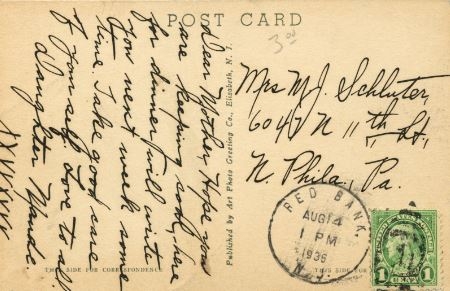 POST CARD
3.00
Dear Mother Hope you
are keeping cool, here
for dinner will write
you next week some
time. Take good care
of yourself. Love to all.
Daughter
XXXXXX
Published by Art Photo Greeting Co., Elizabeth, N. J.
Mrs M. J. Schluter,
6047 N 11th, St,
N. Phila., Pa.
RED BANK
AUG 14
1 PM
1936
N.J.
1 CENT 1
THIS SIDE FOR CORRESPONDENCE
THIS SIDE